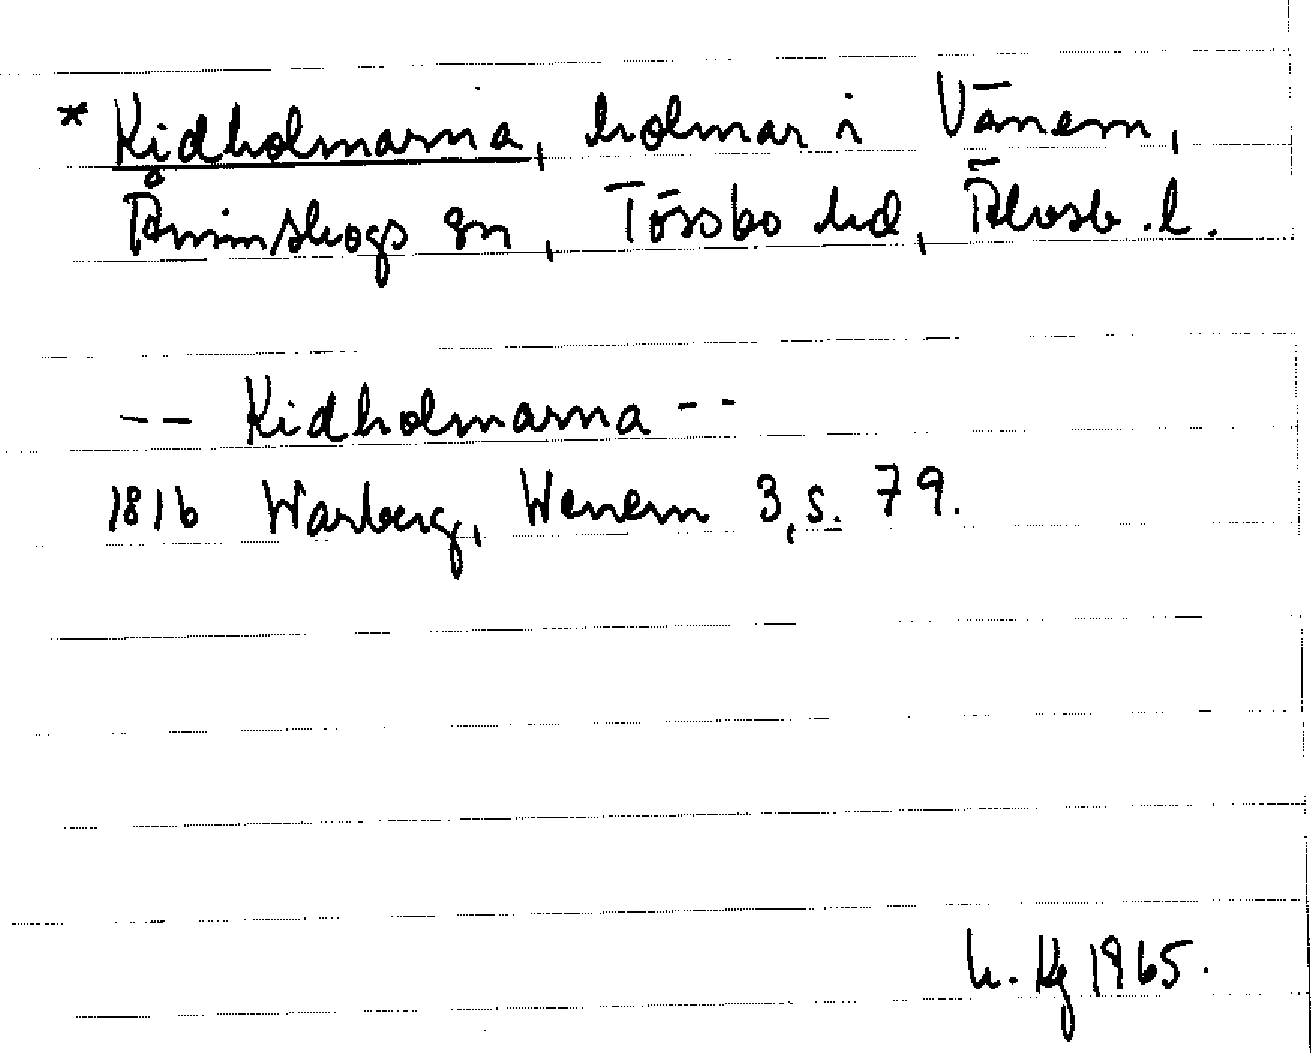 * Kidholmarna, holmar i Vänern,
Åmimskogs sn, Tössbo hd, Älvsb. l.
-- Kidholmarna --
1816 Warberg, Wenern 3, s. 79.
h. Kg 1965.